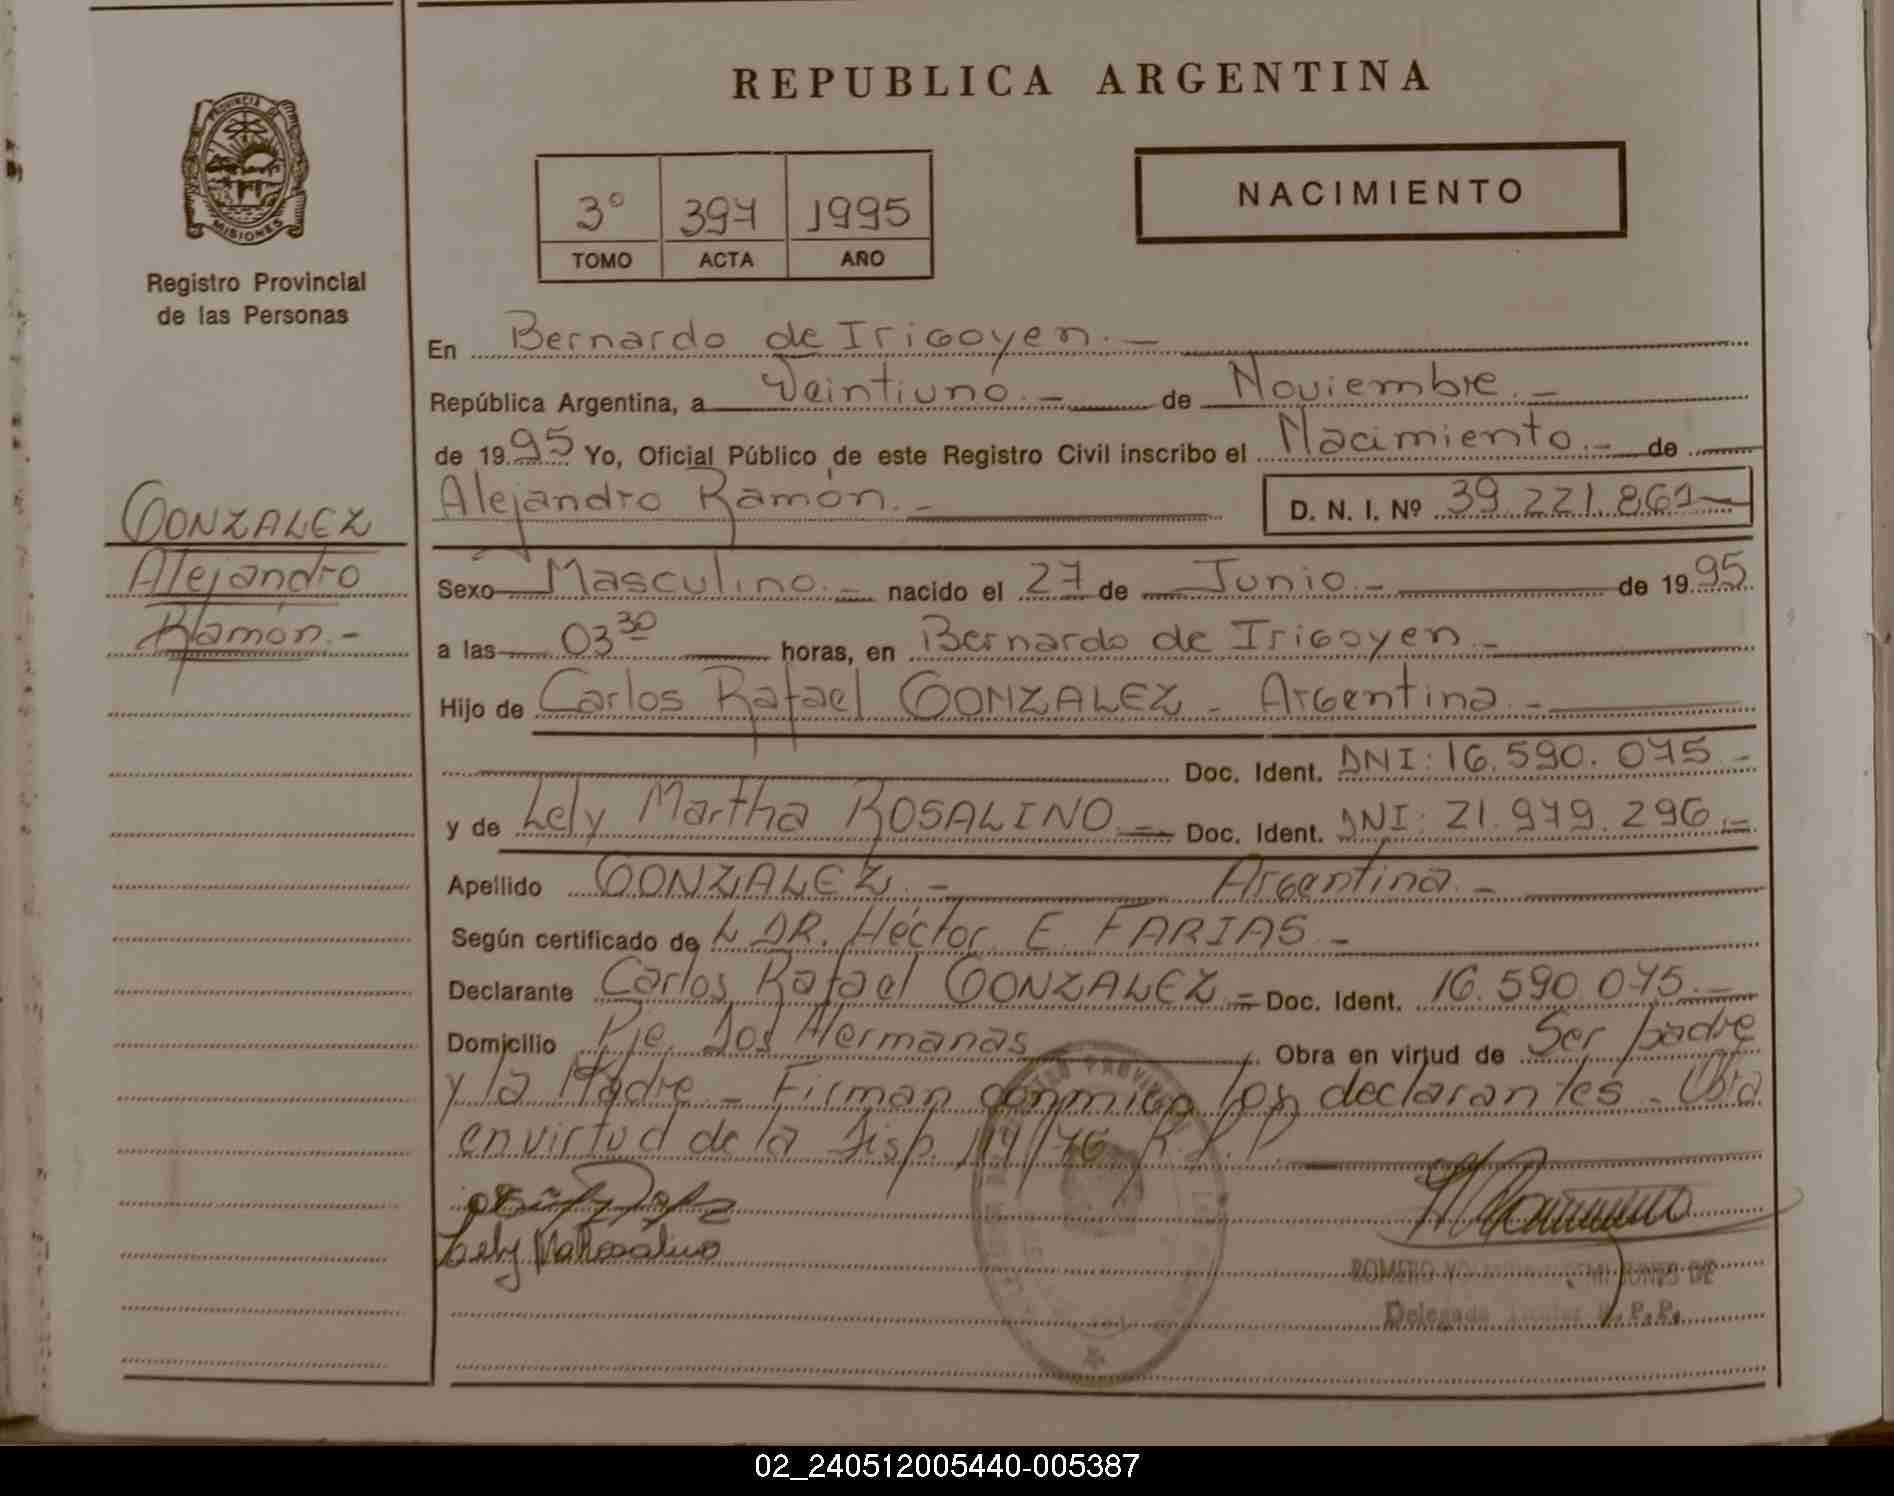 REPUBLICA ARGENTINA
PROVINCIA DE
MISIONES
Registro Provincial
de las Personas
3° 397 1995
TOMO ACTA AÑO
NACIMIENTO
En Bernardo de Irigoyen.-
República Argentina, a Veintiuno.- de Noviembre.-
de 1995 Yo, Oficial Público de este Registro Civil inscribo el Nacimiento.- de
Alejandro Ramón.- D. N. I. Nº 39.221.861-
GONZALEZ
Alejandro
Ramón.-
Sexo Masculino.- nacido el 27 de Junio.- de 1995
a las 03 30 horas, en Bernardo de Irigoyen.-
Hijo de Carlos Rafael GONZALEZ - Argentina.-
Doc. Ident. DNI: 16.590.075.-
y de Lely Martha ROSALINO.- Doc. Ident. DNI: 21.979.296.-
Apellido GONZALEZ.- Argentina.-
Según certificado de L DR. Héctor E. FARIAS.-
Declarante Carlos Rafael GONZALEZ = Doc. Ident. 16.590.075.-
Domicilio Pje. Dos Hermanas Obra en virtud de Ser padre
y la Madre.- Firman conmigo los declarantes.- Obra
en virtud de la Disp. 114/76 R.P.P.
ROMERO DE
Delegada Titular R.P.P.
02_240512005440-005387